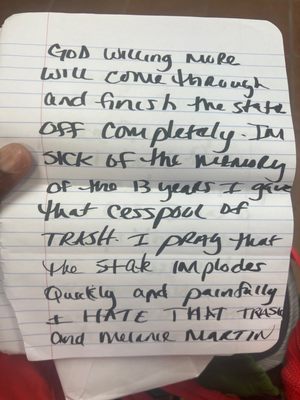 GOD WilliNG MORE
Will COME through
and finish the state
OFF COMPletely. IM
SICK OF the MEMORY
OF the 13 years I gave
that CESSPOOL OF
TRASH. I PRAY that
the state IMPlodes
Quickly and painfully
I HATE THAT TRASH
and MElanie MARTIN